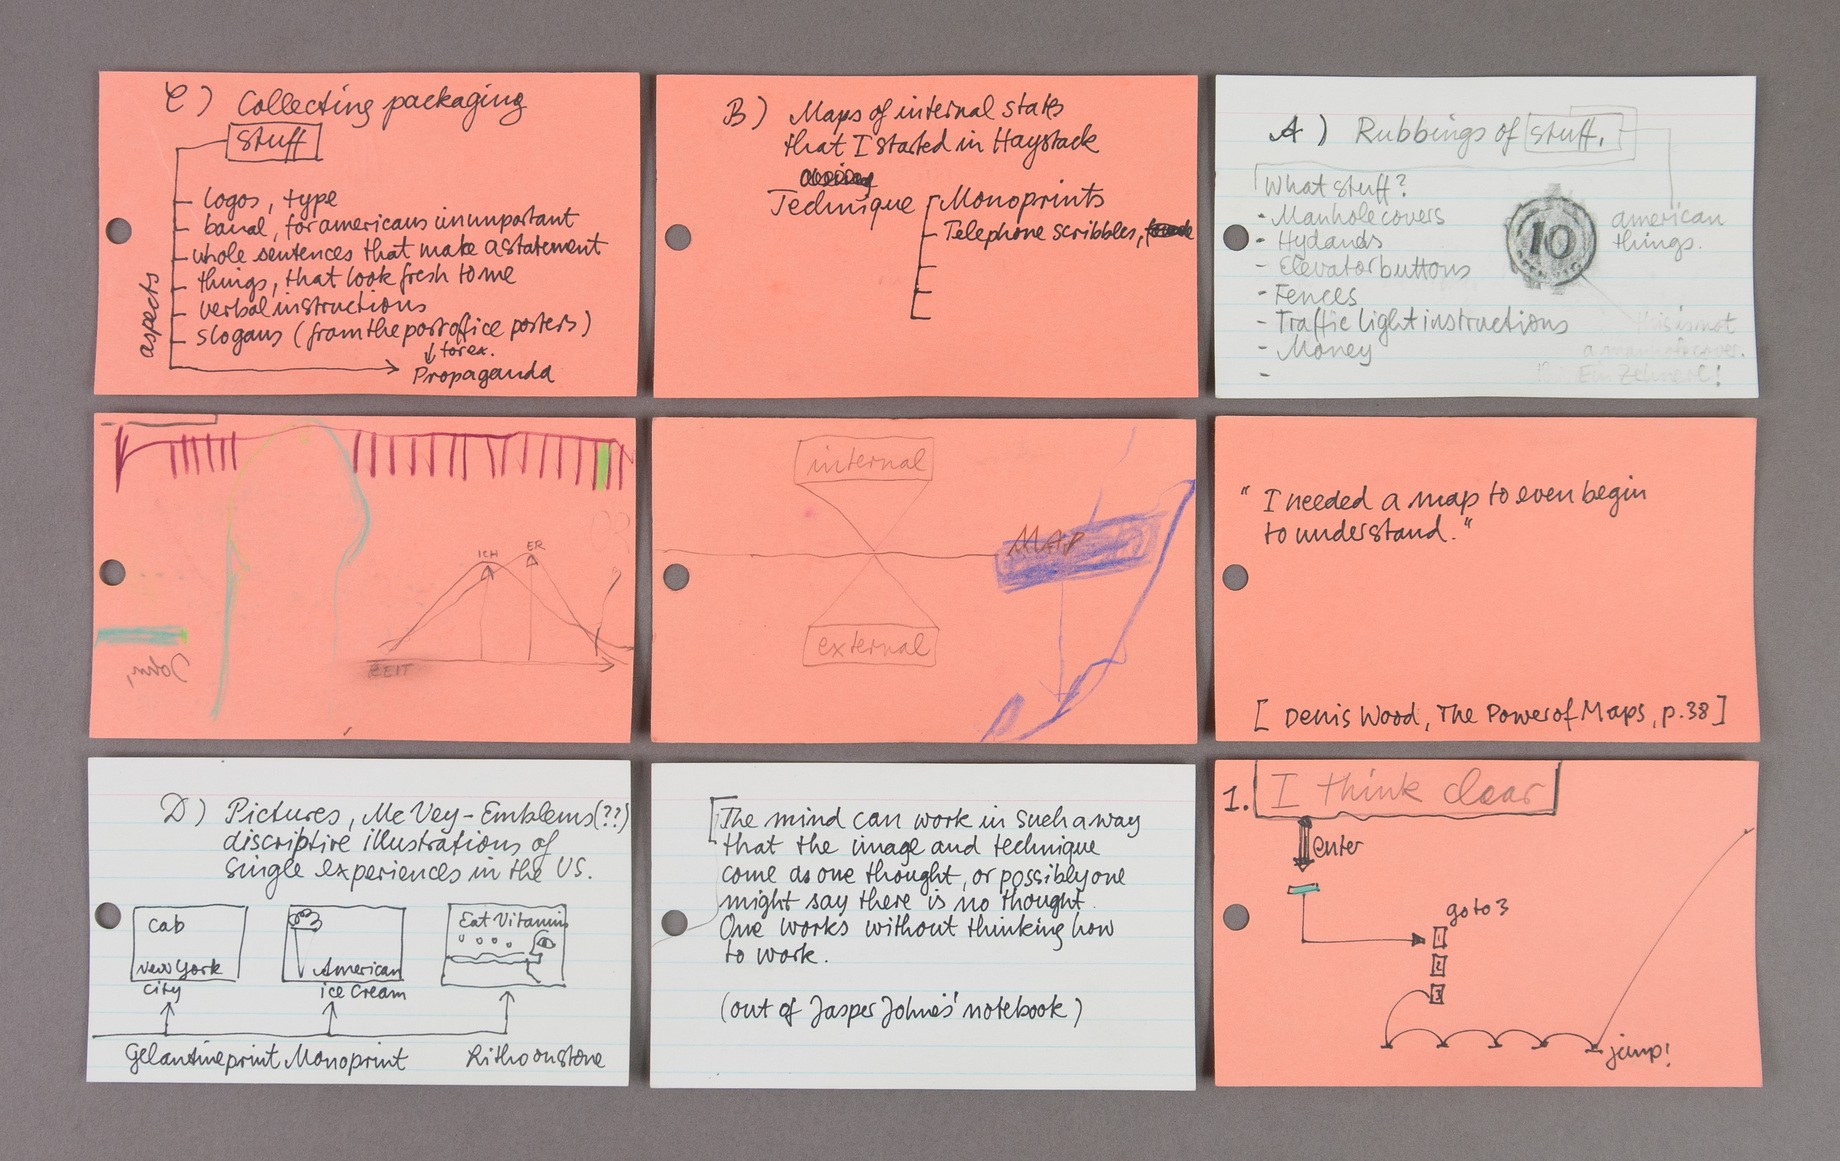 C) Collecting packaging
stuff
aspects
logos, type
banal, for americans inumportant
whole sentences that make a statement
things, that look fresh to me
verbal instructions
slogans (from the post office posters)
for ex.
Propaganda
B) Maps of internal states
that I started in Haystack
Technique
Monoprints
Telephone scribbles,
A) Rubbings of stuff.
What stuff?
- Manhole covers
- Hydands
- Elevator buttons
- Fences
- Traffic light instructions
- Money
-
10
american
things.
this is not
a manhole cover.
Ein Zehnerl!
ICH
ER
ZEIT
John,
internal
MAP
external
"I needed a map to even begin
to understand."
[Denis Wood, The Power of Maps, p.38]
D) Pictures, McVey-Emblems(??)
discriptive illustrations of
single experiences in the US.
cab
New York
City
American
ice Cream
Eat Vitamins
Gelantineprint
Monoprint
Litho on stone
[The mind can work in such a way
that the image and technique
come as one thought, or possibly one
might say there is no thought.
One works without thinking how
to work.
(out of Jasper Johns' notebook)
1. I think clear
enter
go to 3
1
2
3
jump!